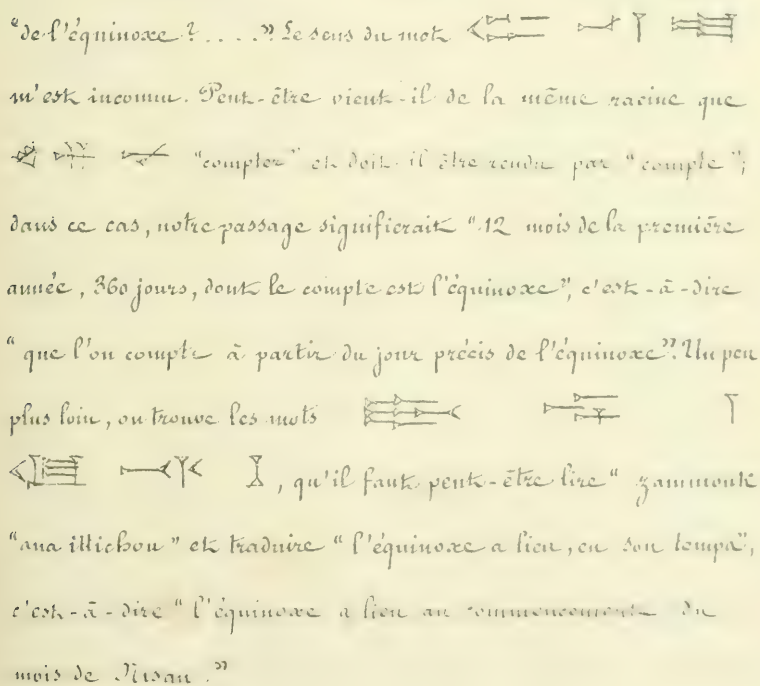 "de l'équinoxe ? . . . ." Le sens du mot
m'est inconnu. Peut-être vient-il de la même racine que
"compter" et doit-il être rendu par "compte";
dans ce cas, notre passage signifierait "12 mois de la première
année, 360 jours, dont le compte est l'équinoxe", c'est-à-dire
"que l'on compte à partir du jour précis de l'équinoxe". Un peu
plus loin, on trouve les mots
, qu'il faut peut-être lire "zammouk
"ana ittichou" et traduire "l'équinoxe a lieu, en son temps",
c'est-à-dire "l'équinoxe a lieu au commencement du
mois de Nisan."